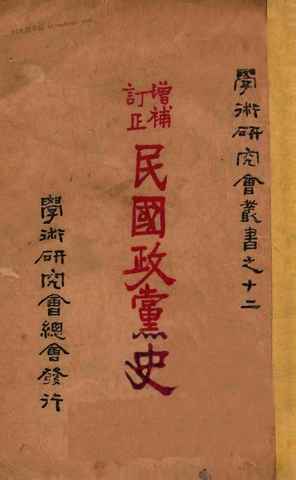 學術研究會叢書之十二
增補
訂正
民國政黨史
學術研究會總會發行